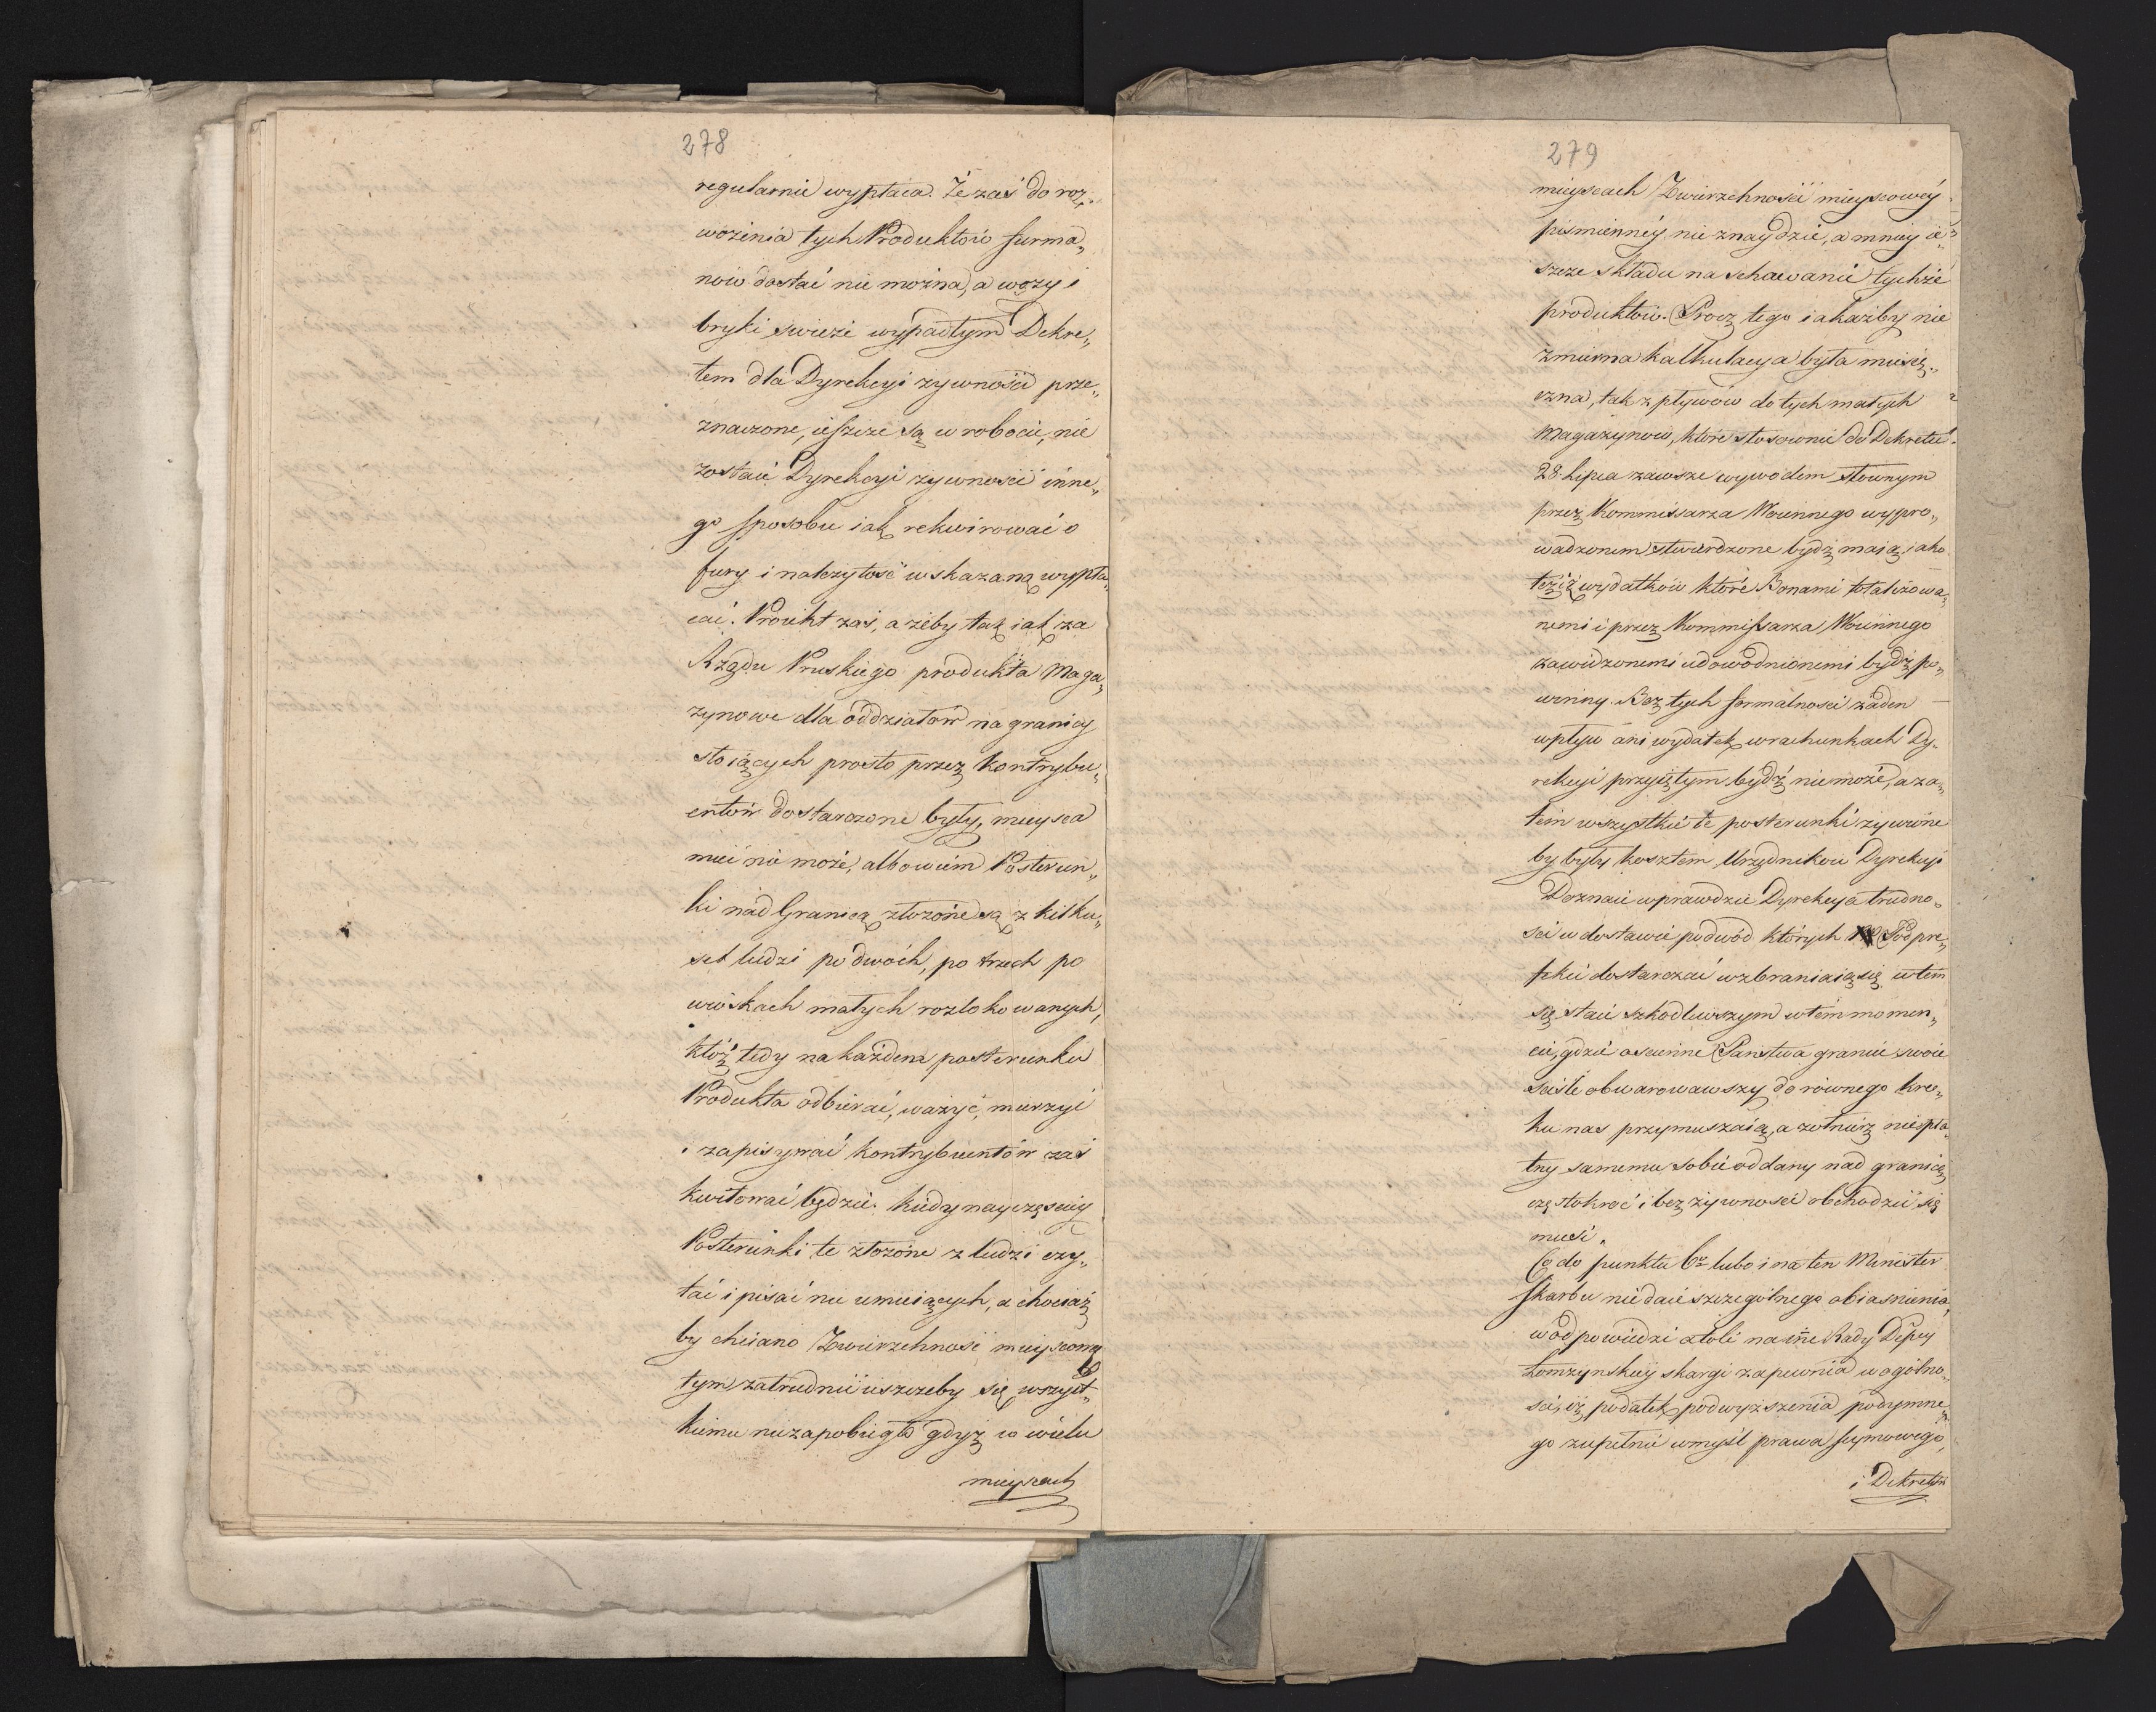 278
regularnie wypłaca. Że zaś do roz„
wożenia tych Produktów furma„
nów dostać nie można, a wozy i
bryki swieże wypadłym Dekre„
tem dla Dyrekcyi zywności prze„
znaczone, ieszcze są w robocie, nie
zostaie Dyrekcyi żywności inne„
go sposobu iak rekwirować o
fury i należytość wskazaną wypła„
cać. Proiekt zaś, ażeby tak iak za
Rządu Pruskiego produkta Maga„
zynowe dla oddziałów na granicy
stoiących prosto przez kontrybu„
entów dostarczone były, mieysca
mieć nie może, albowiem Posterun„
ki nad Granicą złożone są z kilku„
set ludzi po dwóch, po trzech po
wioskach małych rozlokowanych,
któż tedy na każdem posterunku
Produkta odbierać, ważyć, mierzyć
i zapisywać kontrybuentów zaś
kwitować będzie. kiedy nayczęściey
Posterunki te złożone z ludzi czy„
tać i pisać nie umieiących, a chociaż
by chciano Zwierzchność mieyscową
tym zatrudnić ieszczeby się wszyst„
kiemu nie zapobiegło gdyż w wielu
mieyscach
279
mieyscach Zwierzchności mieyscowéy
pismiennéy nie znaydzie, a mniéy ie„
szcze składu na schowanie tychże
produktów. Procz tego iakażby nie
zmierna kalkulacya była miesię„
czna, tak z pływów do tych małych
Magazynów, które stosownie do Dekretu
28. Lipca zawsze wywodem słownym
przez Kommissarza Woiennego wypro„
wadzonem stwierdzone bydź maią, iako
też iż wydatków które Bonami totalizowa„
nemi i przez Kommissarza Woiennego
zawidzonemi udowodnionemi bydź po„
winny. Bez tych formalności żaden
wpływ ani wydatek w rachunkach Dy„
rekcyi przyiętym bydź nie może, a za„
tem wszystkie te posterunki żywione
by były kosztem Urzędników Dyrekcyi
Doznaie wprawdzie Dyrekcya trudno„
ści w dostawie podwód których Podpre„
fekci dostarczać wzbraniaią się w tem
się staie szkodliwszym w tem momen„
cie, gdzie oscienne Państwa granice swoie
ściśle obwarowawszy do równego kro„
ku nas przymuszaią, a żołnierz niepła„
tny samemu sobie oddany nad granicą
częstokroć i bez żywności obchodzić się
musi.
Co do punktu 6º lubo i na ten Minister
Skarbu nie daie szczególnego obiasnienia,
w odpowiedzi atoli na inne Rady Depey
Łomżynskiey skargi zapewnia w ogólno„
sci, iż podatek podwyższenia podymne„
go zupełnie wmyśl prawa seymowego,
i Dekretów